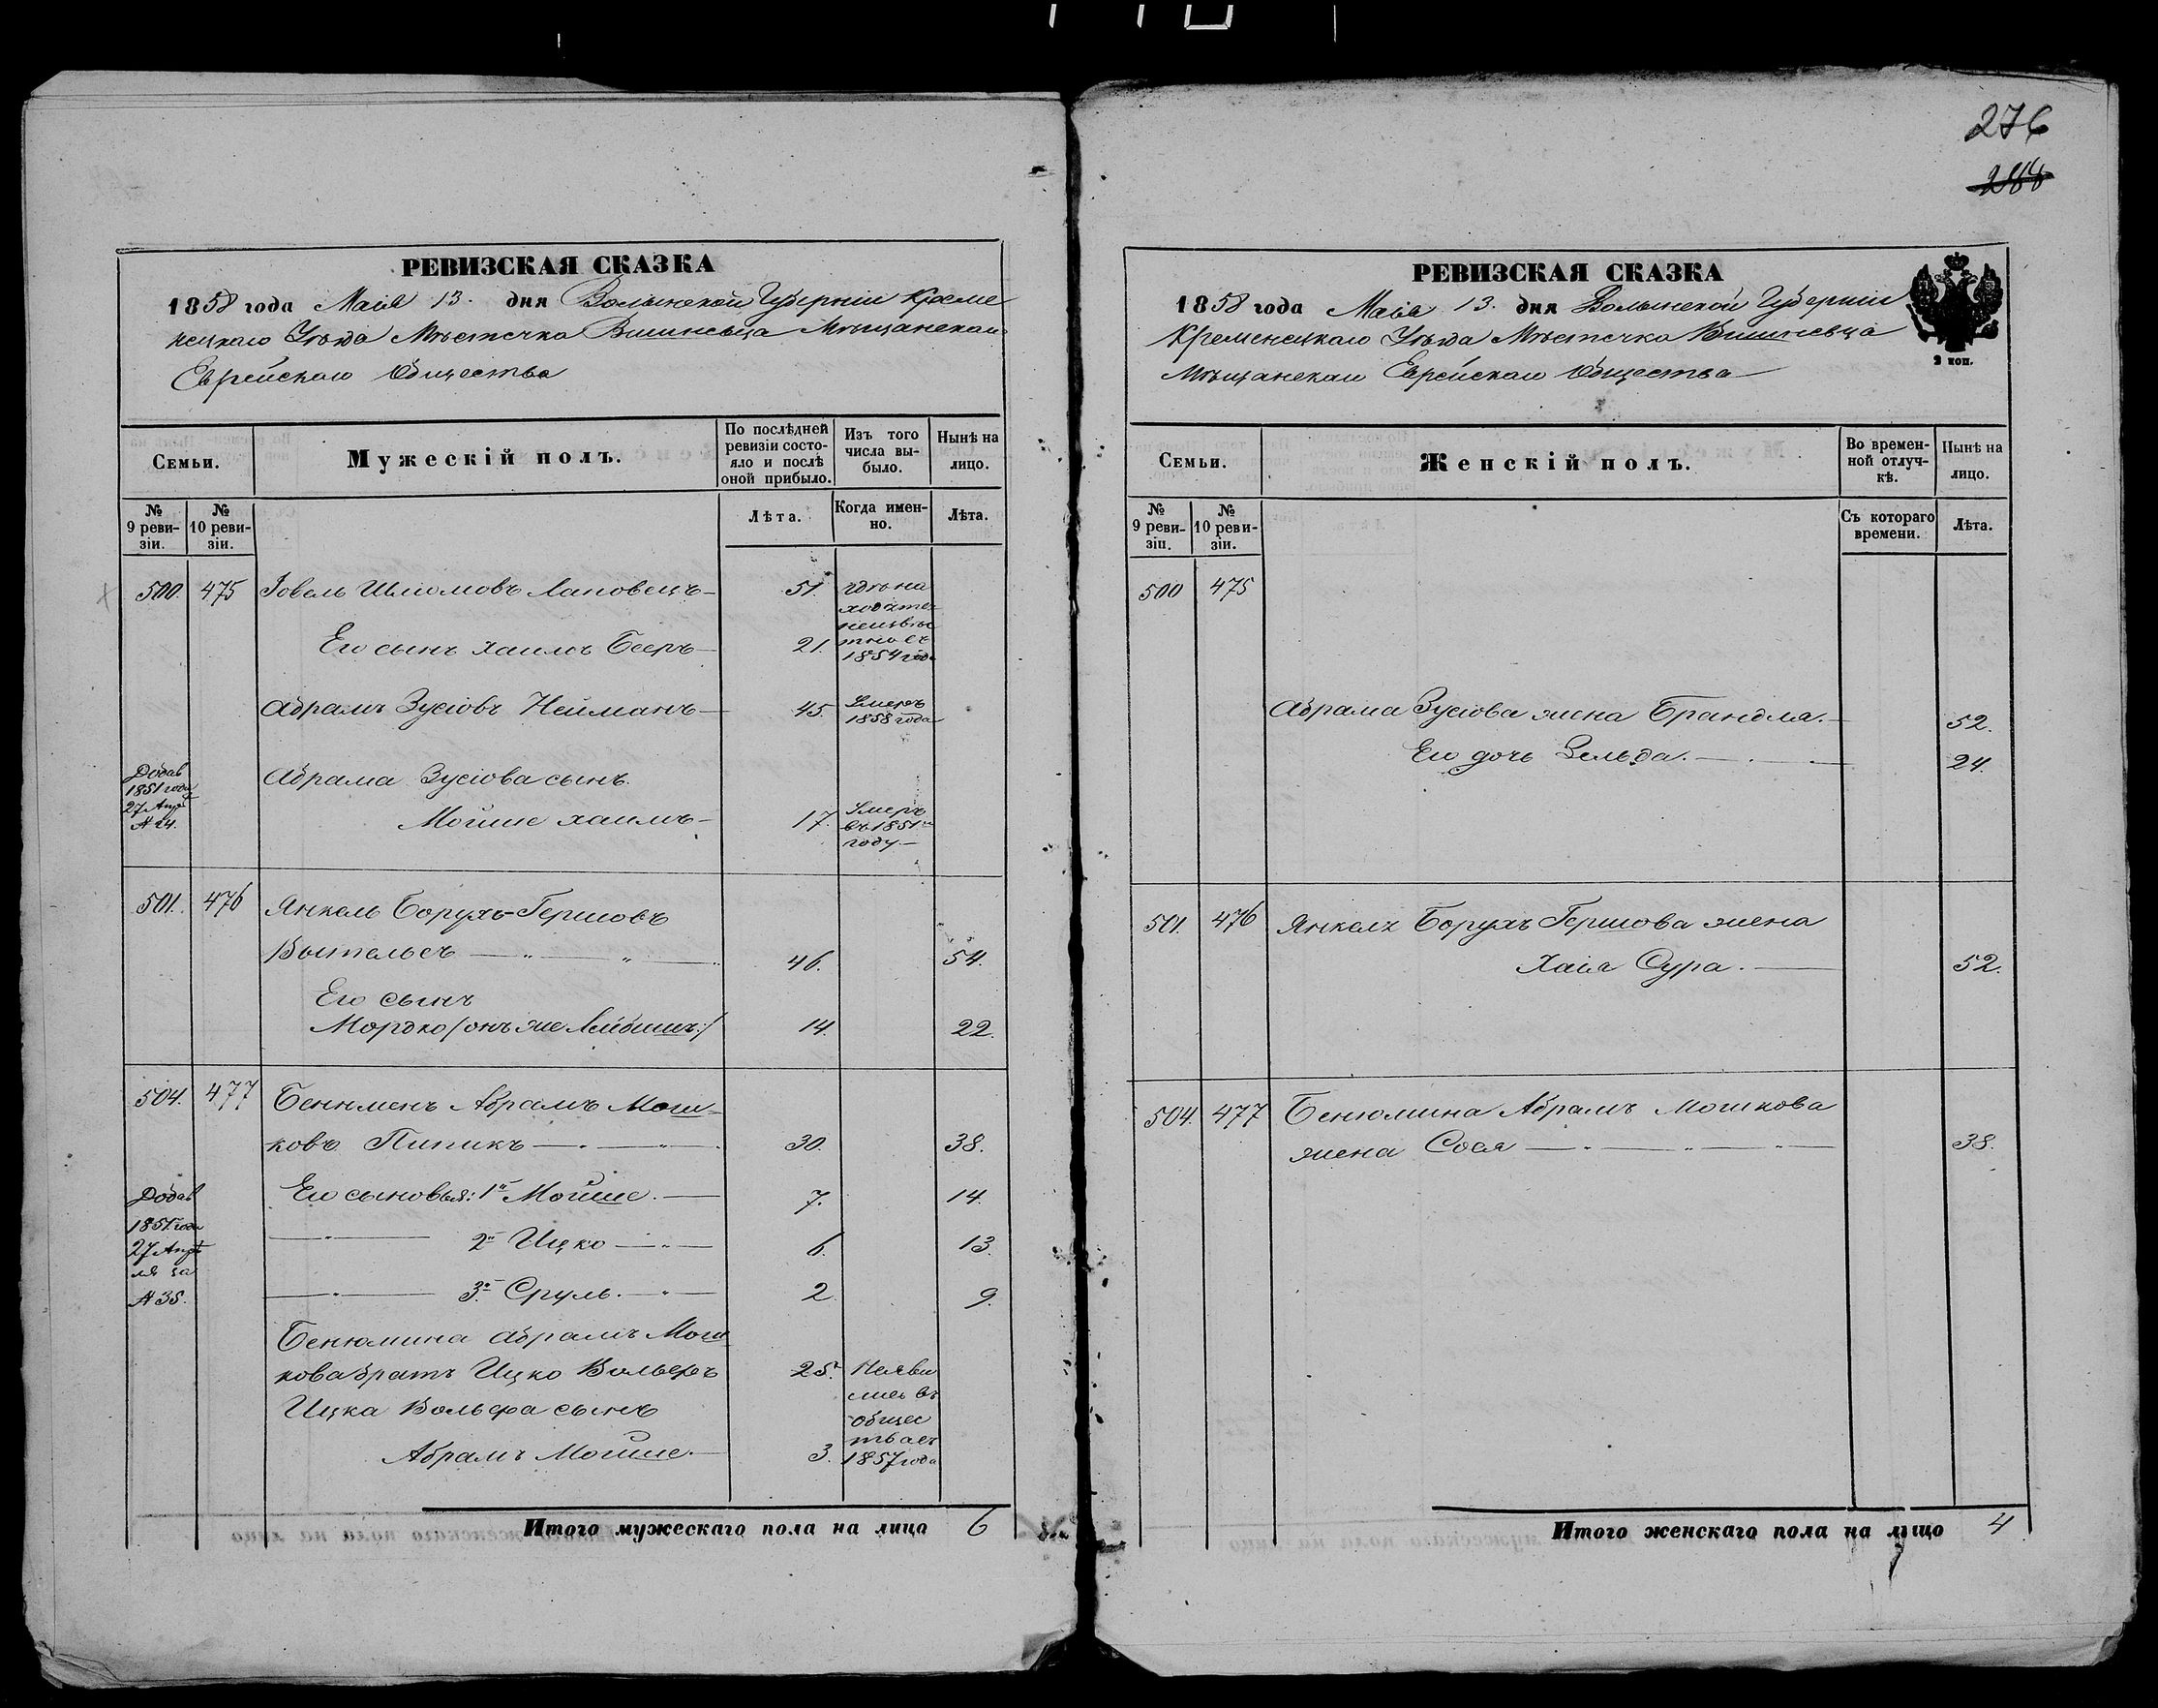 276
288
РЕВИЗСКАЯ СКАЗКА
1858 года Маія 13. дня Волынской Губерніи Креме
нецкаго Уѣзда Мѣстечка Вишневца Мѣщанскаго
Еврейскаго Общества
Семьи.
Мужескій полъ.
По послѣдней ревизіи состояло и послѣ оной прибыло.
Изъ того числа выбыло.
Нынѣ на лицо.
№ 9 ревизіи.
№ 10 ревизіи.
Лѣта.
Когда именно.
Лѣта.
500. 475 Іовель Шліомовъ Лановецъ 51. гдѣ на
ходятся
неизвѣс
Его сынъ Хаимъ Бееръ 21. тно съ
1854 года
Абрамъ Зусіовъ Нейманъ 45. Умеръ
1858 года
Добав
1851 года
27 Апр
№ 24.
Абрама Зусіова сынъ
Мойше Хаимъ 17. Умеръ
въ 1851м
году
501. 476 Янкель Борухъ-Гершовъ
46. 54.
Его сынъ
Мордко /онъ же Лейбишъ:/ 14. 22.
504. 477 Бенюменъ Абрамъ Мош
ковъ Пипикъ 30. 38.
Добав
1851 года
27 Апрѣ
ля за
№ 38.
Его сыновья: 1й Мойше. 7. 14.
2й Ицко 6. 13.
3й Сруль. 2 9.
Бенюмина Абрамъ Мош
кова братъ Ицко Вольфъ 25. Неяви
лись въ
Ицка Вольфа сынъ
общес
тва съ
Абрамъ Мойше. 3. 1857 года
Итого мужескаго пола на лицо 6
РЕВИЗСКАЯ СКАЗКА
1858 года Маія 13. дня Волынской Губерніи
Кременецкаго Уѣзда Мѣстечка Вишневца
Мѣщанскаго Еврейскаго Общества
2 коп.
Семьи.
Женскій полъ.
Во временной отлучкѣ.
Нынѣ на лицо.
№ 9 ревизіи.
№ 10 ревизіи.
Съ котораго времени.
Лѣта.
500 475
Абрама Зусіова жена Брандла. 52.
Его дочь Зельда. 24.
501. 476 Янкеля Борухъ Гершова жена
Хаія Сура. 52.
504. 477 Бенюмина Абрамъ Мошкова
жена Сося 38.
Итого женскаго пола на лицо 4